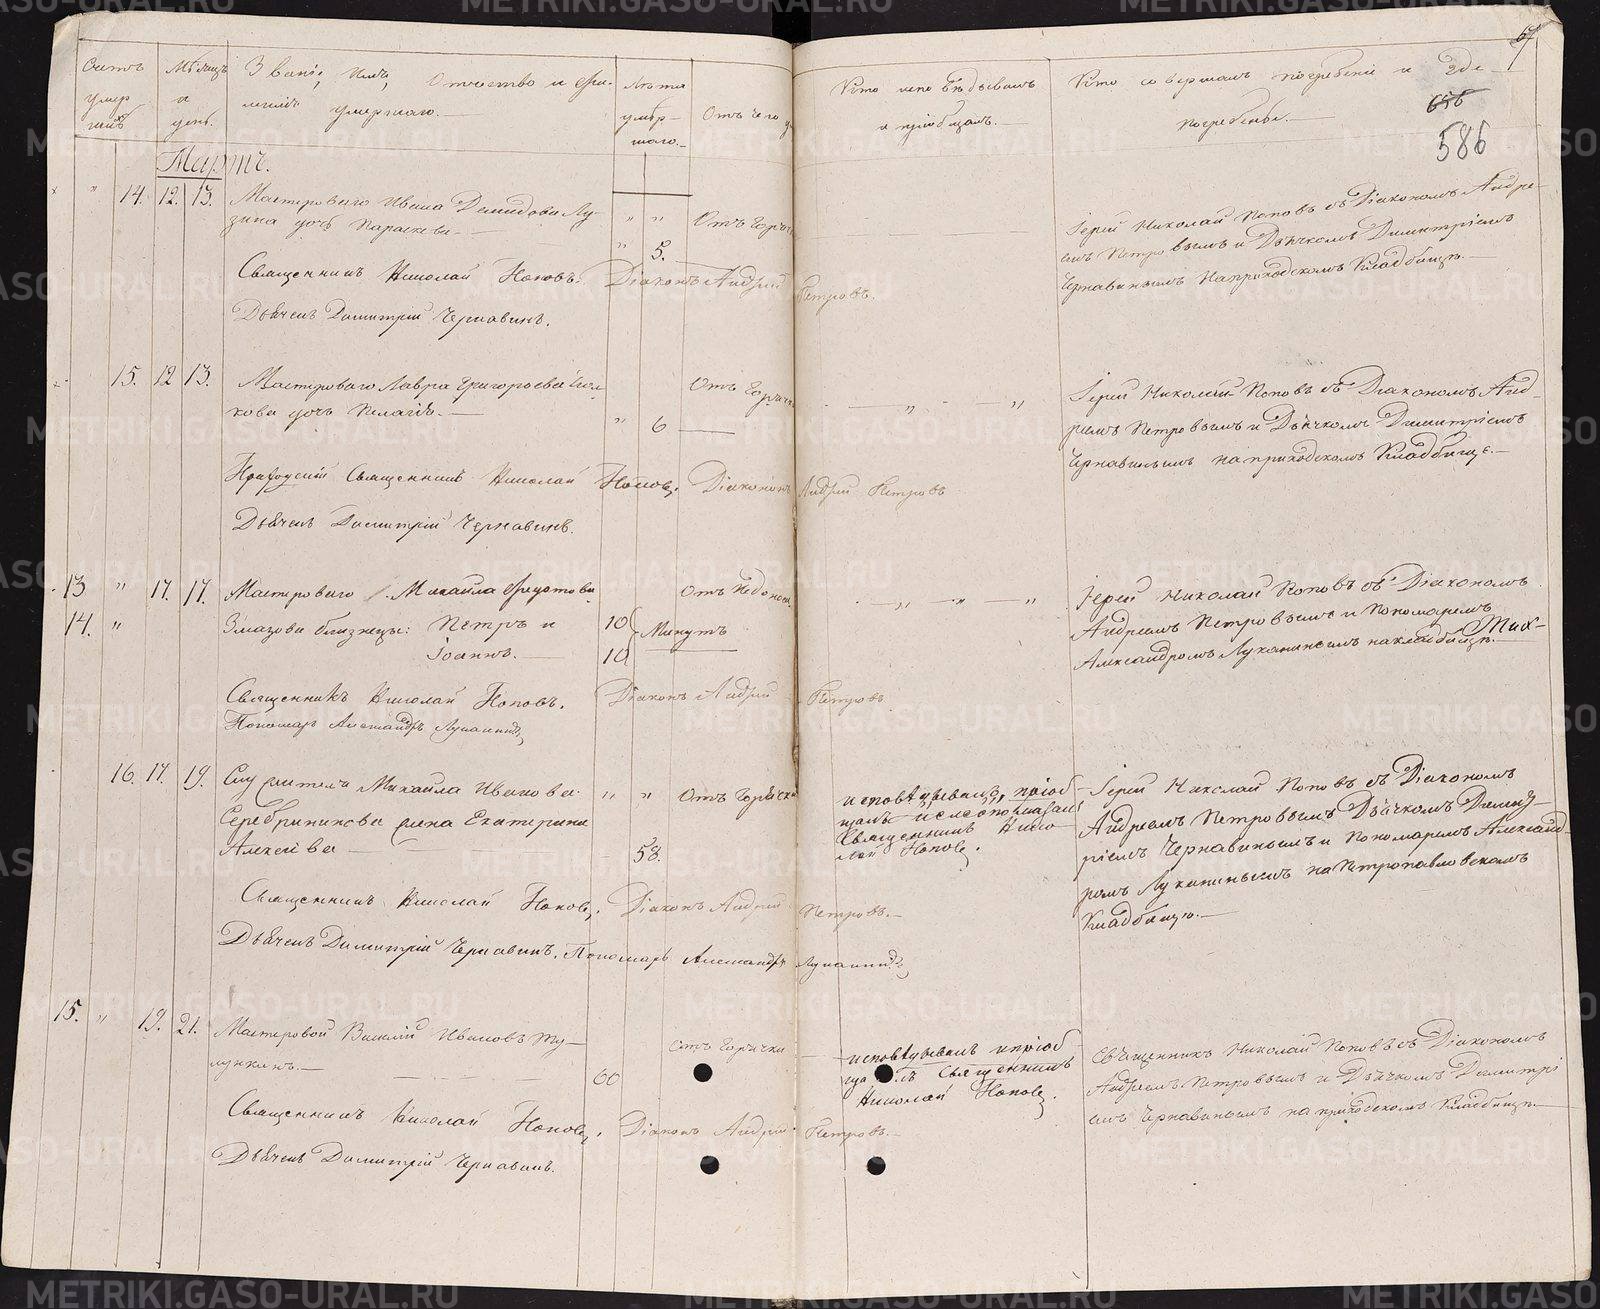 67
656
586
Счетъ умершихъ
Мѣсяцъ и день.
Званіе, имя, Отчество и фамилія умершаго.
Лѣта умершаго.
Отъ чего у
Кто исповѣдывалъ и пріобщалъ.
Кто совершалъ погребеніе и Гдѣ погребены.
Мартъ.
" 14. 12. 13.
Мастероваго Ивана Демидова
дочь Параскева.
" "
" 5.
Отъ Горяч
Іерей Николай Поповъ съ Діакономъ Андре-
емъ Петровымъ и Дьячкомъ Димитріемъ
Чернавинымъ На приходскомъ Кладбищѣ.
Священникъ Николай Поповъ. Діаконъ Андрей Петровъ.
Дьячекъ Димитрій Чернавинъ.
15. 12 13.
Мастероваго Лавра Григорьева
кова дочь Пелагія.
" 6
Отъ Горячк
" "
Іерей Николай Поповъ съ Діакономъ Анд-
реемъ Петровымъ и Дьячкомъ Димитріемъ
Чернавинымъ на приходскомъ Кладбищѣ.
Приходскій Священникъ Николай Поповъ. Діаконъ Андрей Петровъ
Дьячекъ Димитрій Чернавинъ.
13 " 17. 17.
Мастероваго Михаила
14. "
близнецы: Петръ и
Іоаннъ.
10
10
Минутъ
Отъ Недонос
" " "
Іерей Николай Поповъ съ Діакономъ
Андреемъ Петровымъ и Пономаремъ
Александромъ Луканинымъ на кладбищѣ.
Священникъ Николай Поповъ. Діаконъ Андрей Петровъ
Пономарь Александръ Луканинъ
16. 17. 19.
Служителя Михаила Иванова
Серебрянникова жена Екатерина
Алексѣева
" "
58.
Отъ Горячки
исповѣдывалъ, пріоб-
щалъ и елеопомазалъ
Священникъ Нико-
лай Поповъ.
Іерей Николай Поповъ съ Діакономъ
Андреемъ Петровымъ Дьячкомъ Димит-
ріемъ Чернавинымъ и Пономаремъ Александ-
ромъ Луканинымъ на Петропавловскомъ
Кладбищѣ.
Священникъ Николай Поповъ. Діаконъ Андрей Петровъ.
Дьячекъ Димитрій Чернавинъ. Пономарь Александръ Луканинъ
15. " 19. 21.
Мастеровой Василій Ивановъ
60
отъ горячки
исповѣдывалъ и пріоб-
щалъ Священникъ
Николай Поповъ.
Священникъ Николай Поповъ съ Діакономъ
Андреемъ Петровымъ и Дьячкомъ Димитрі
емъ Чернавинымъ на приходскомъ Кладбищѣ.
Священникъ Николай Поповъ. Діаконъ Андрей Петровъ.
Дьячекъ Димитрій Чернавинъ.
METRIKI.GASO-URAL.RU